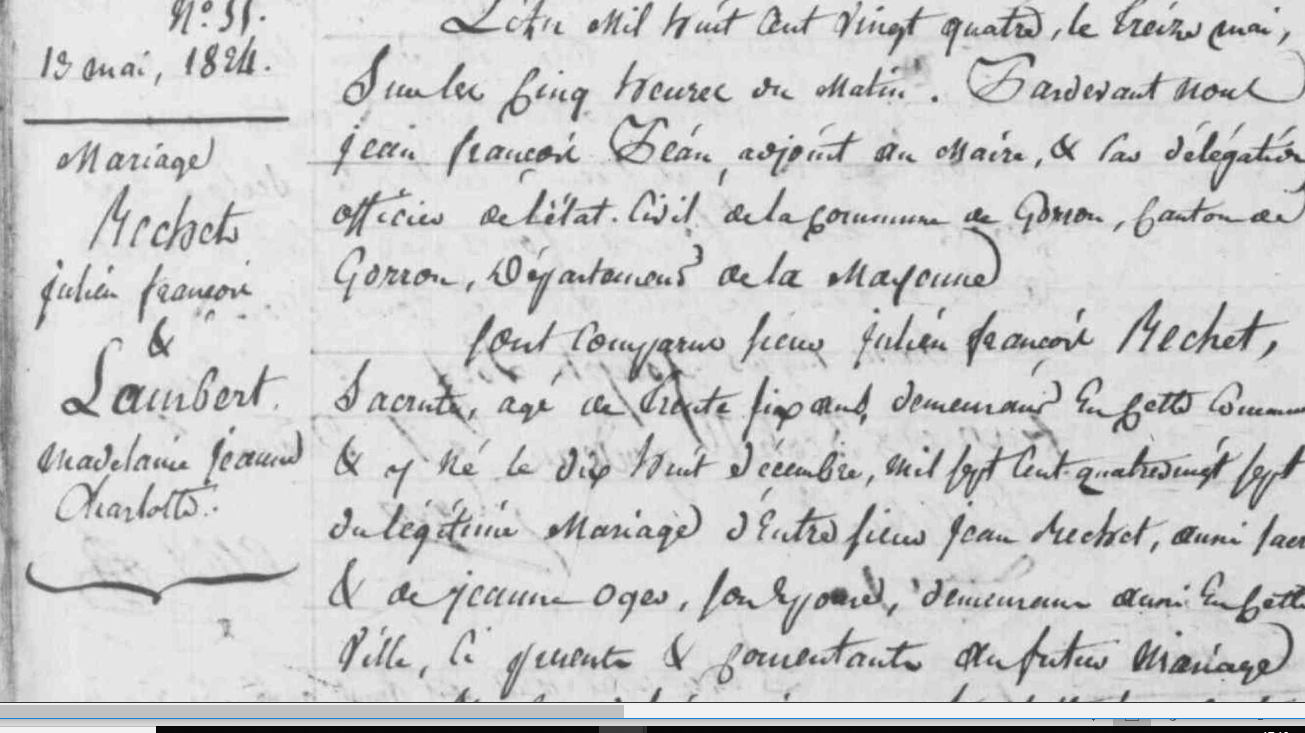 N.º 31.
13 mai, 1824.
Mariage
Rechet
julien françois
&
Lambert.
madelaine jeanne
Charlotte.
L'an Mil huit Cent Vingt quatre, le treize mai,
Sur les Cinq heures du Matin. Pardevant nous
jean françois Péan, adjoint au Maire, & par délégation
officier de l'état. Civil de la Commune de Gorron, Canton de
Gorron, Département de la Mayenne
sont Comparus sieur julien françois Rechet,
agé de trente six ans, demeurant En Cette Commune
& y Né le dix huit décembre, Mil sept Cent quatrevingt sept
du légitime Mariage d'Entre sieur jean Rechet, aussi
& de jeanne oger, son Epouse, demeurans aussi En Cette
Ville, Ci présents & Consentants au futur Mariage